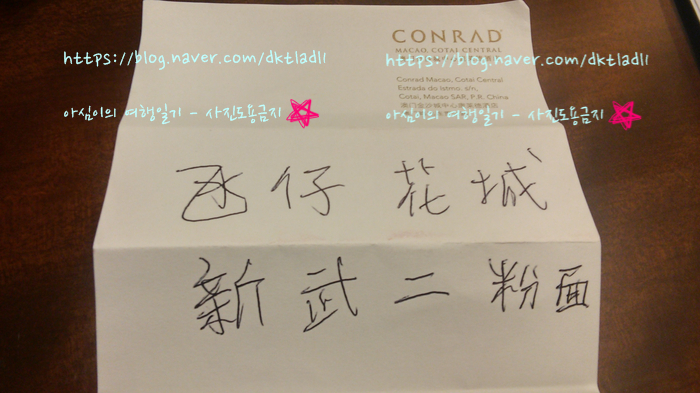 CONRAD
MACAO, COTAI CENTRAL
https://blog.naver.com/dktladl1 https://blog.naver.com/dktladl1
Conrad Macao, Cotai Central
Estrada do Istmo. s/n,
Cotai, Macao SAR, P.R. China
아심이의 여행일기 - 사진도용금지 아심이의 여행일기 - 사진도용금지
氹仔 花城
新武二粉面